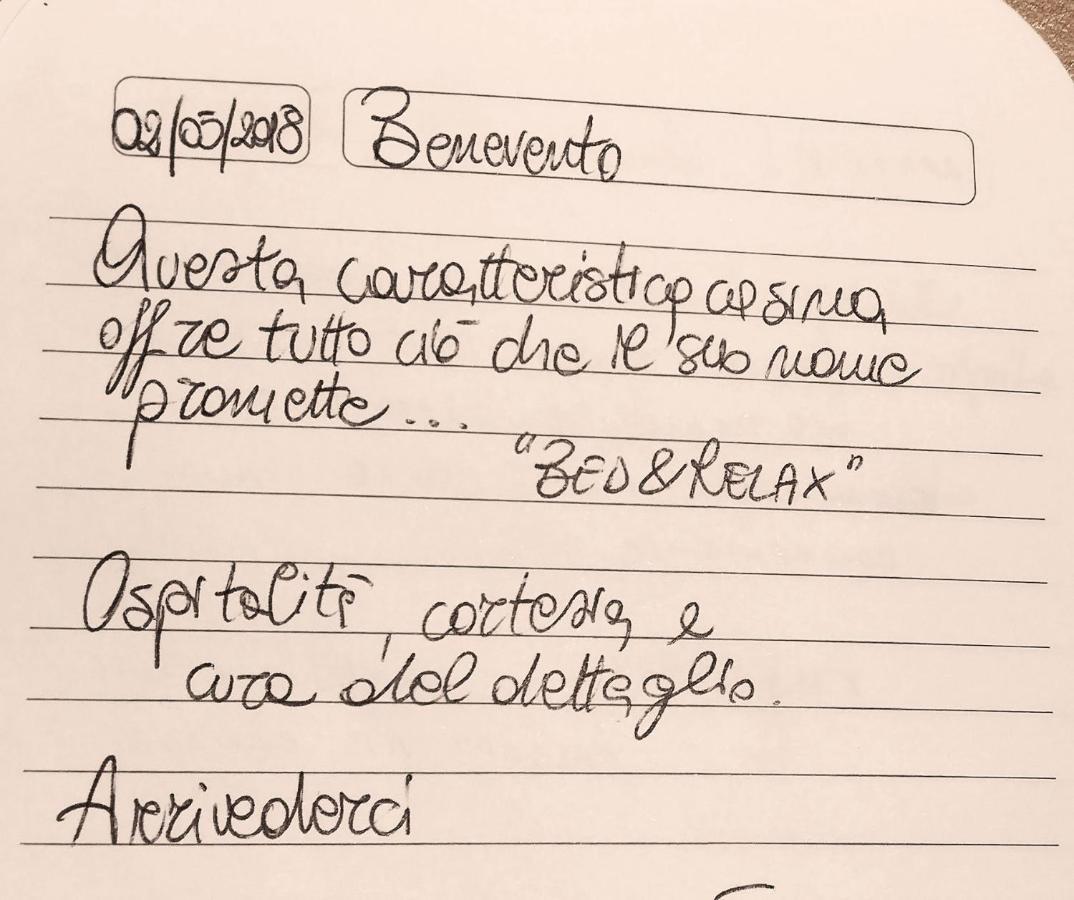 02/05/2018 Benevento
Questa caratteristica casina
offre tutto ciò che il suo nome
promette...
"BED & RELAX"
Ospitalità, cortesia e
cura del dettaglio.
Arrivederci